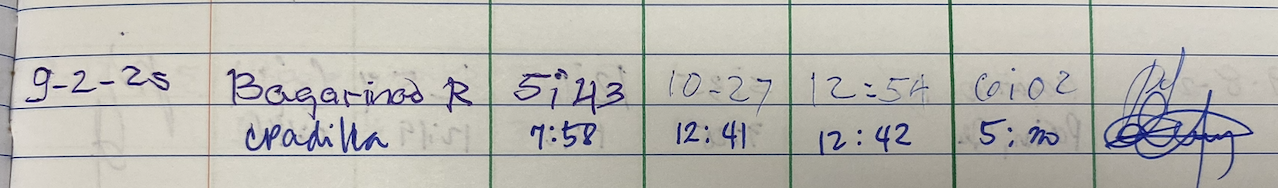 9-2-25 Bagarinao R 5:43 10-27 12:54 6:02
cpadilla 7:58 12:41 12:42 5:20